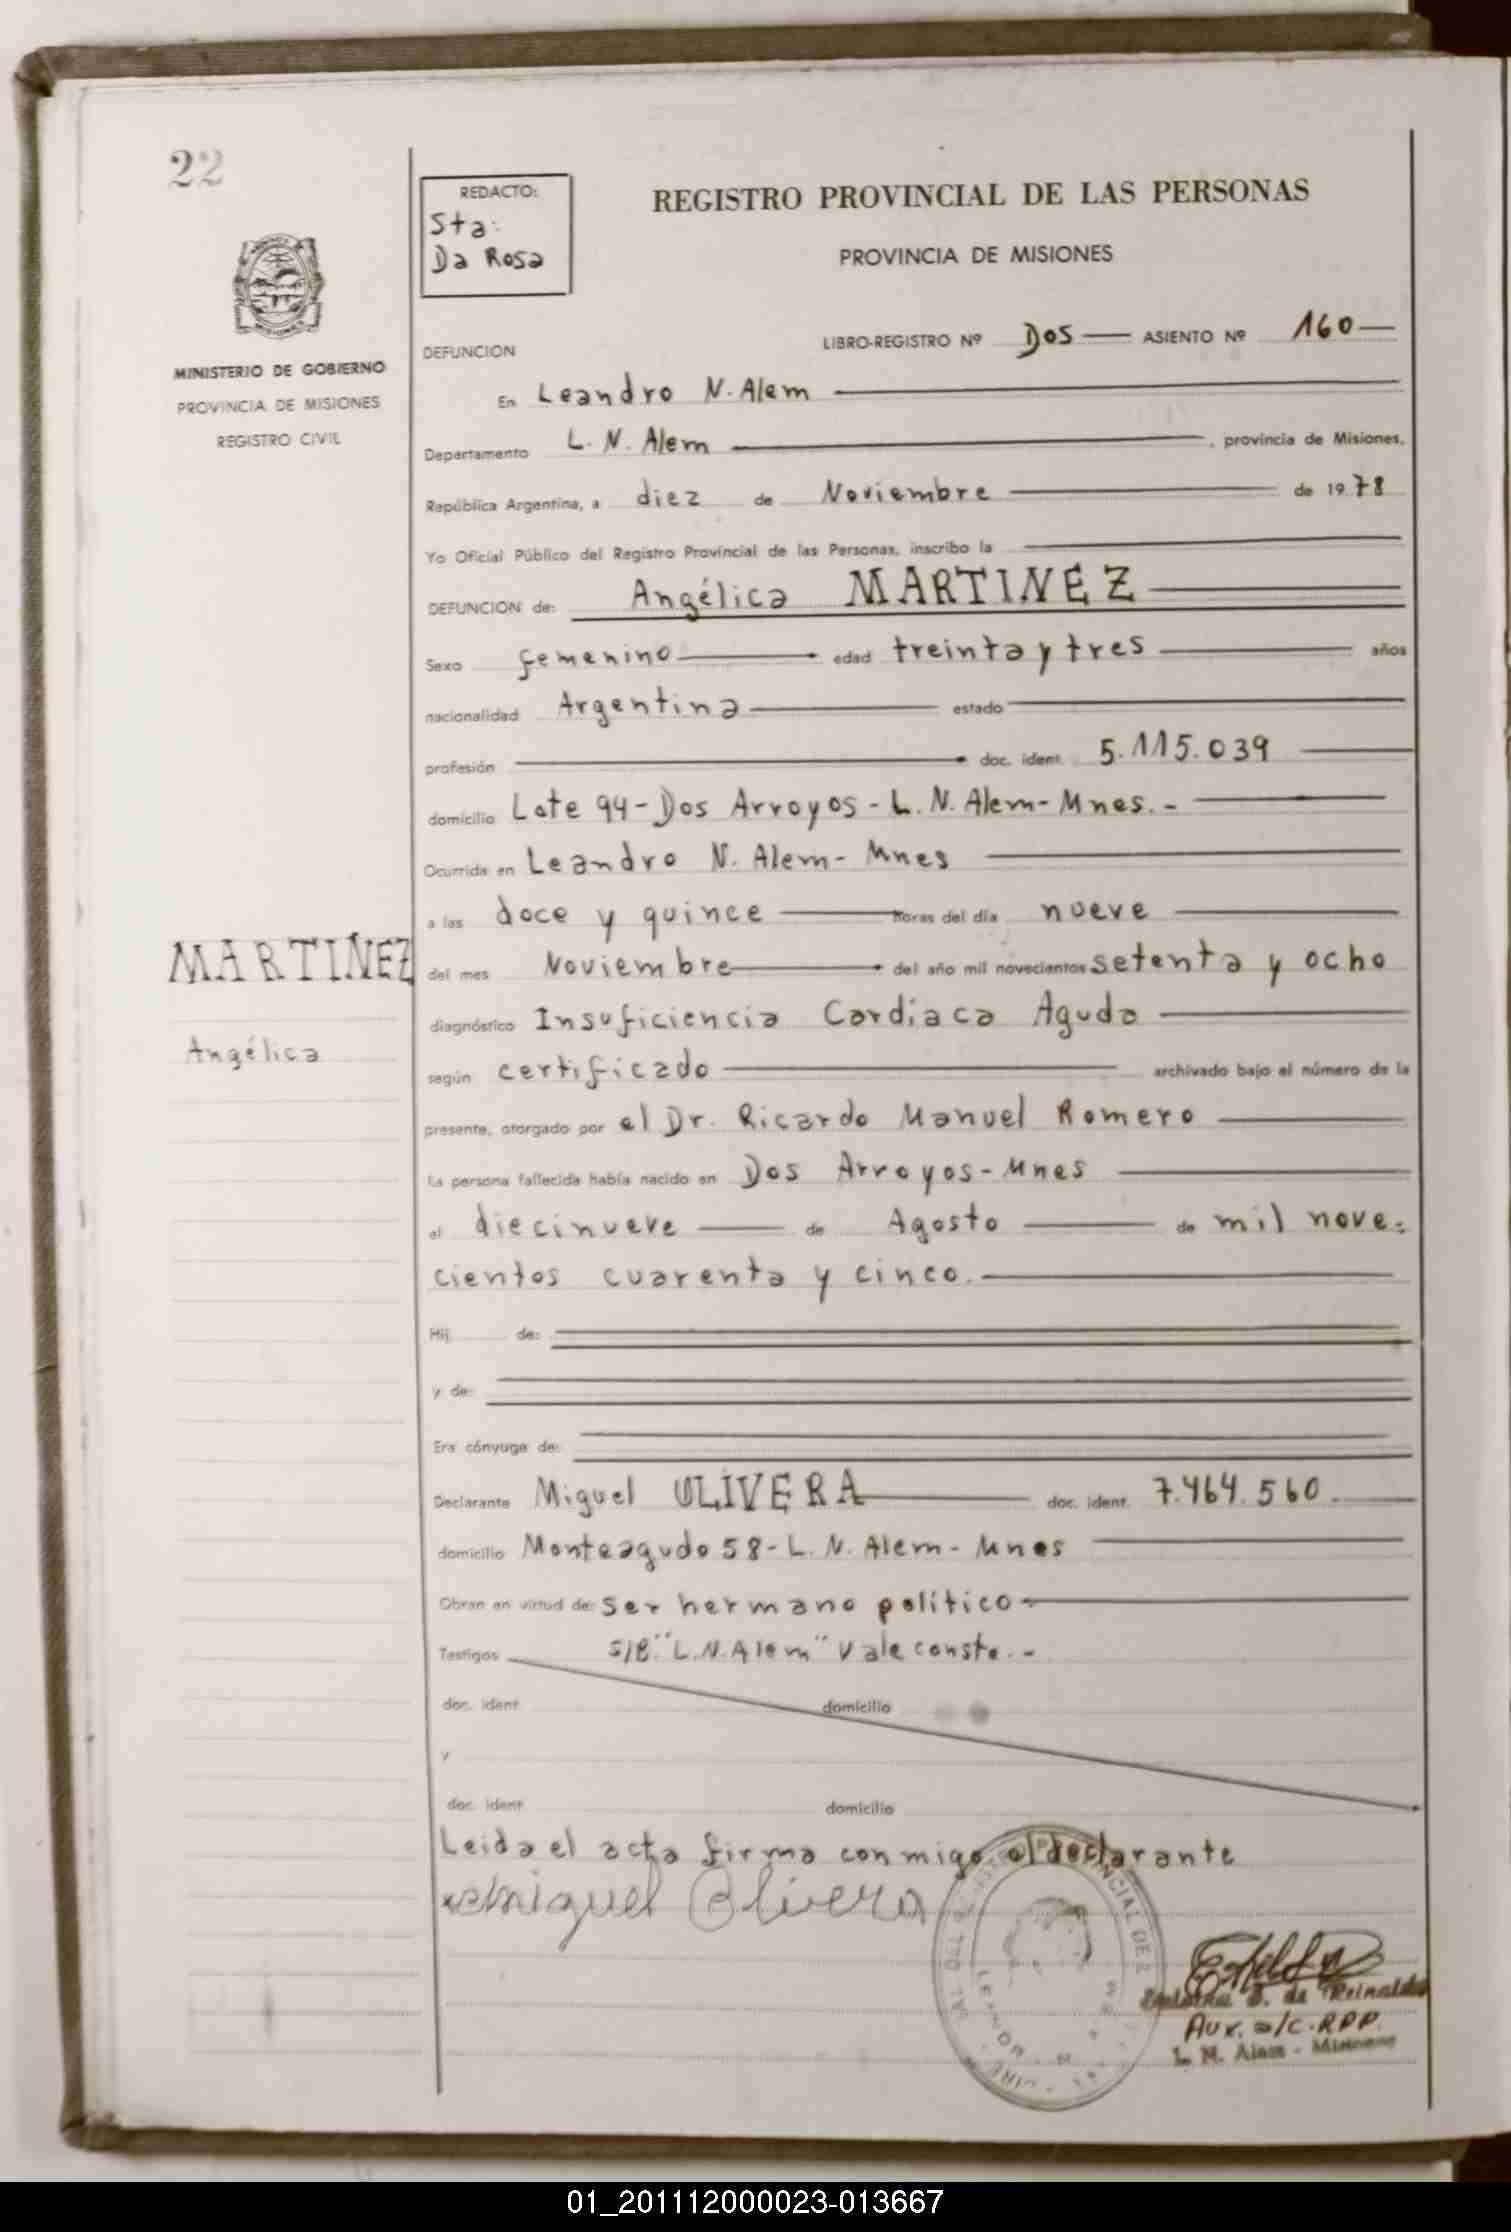 22
REDACTO:
Sta.
Da Rosa
REGISTRO PROVINCIAL DE LAS PERSONAS
PROVINCIA DE MISIONES
MINISTERIO DE GOBIERNO
PROVINCIA DE MISIONES
REGISTRO CIVIL
DEFUNCION LIBRO-REGISTRO Nº Dos ASIENTO Nº 160
En Leandro N. Alem
Departamento L. N. Alem, provincia de Misiones,
República Argentina, a diez de Noviembre de 1978
Yo Oficial Público del Registro Provincial de las Personas, inscribo la
DEFUNCION de: Angélica MARTINEZ
Sexo femenino edad treinta y tres años
nacionalidad Argentina estado
profesión doc. ident. 5.115.039
domicilio Lote 94 - Dos Arroyos - L. N. Alem - Mnes. -
Ocurrida en Leandro N. Alem - Mnes
a las doce y quince horas del día nueve
MARTINEZ
Angélica
del mes Noviembre del año mil novecientos setenta y ocho
diagnóstico Insuficiencia Cardiaca Aguda
según certificado archivado bajo el número de la
presente, otorgado por el Dr. Ricardo Manuel Romero
La persona fallecida había nacido en Dos Arroyos - Mnes
el diecinueve de Agosto de mil nove-
cientos cuarenta y cinco.
Hij de:
y de:
Era cónyuge de:
Declarante Miguel OLIVERA doc. ident. 7.464.560.
domicilio Monteagudo 58 - L. N. Alem - Mnes
Obran en virtud de: ser hermano político
Testigos S/B. "L. N. Alem" Vale conste. -
doc. ident. domicilio
y
doc. ident. domicilio
Leida el acta firma conmigo el declarante
Miguel Olivera
de Reinaldo
Aux. a/c. RPP.
L. N. Alem - Misiones
01_201112000023-013667